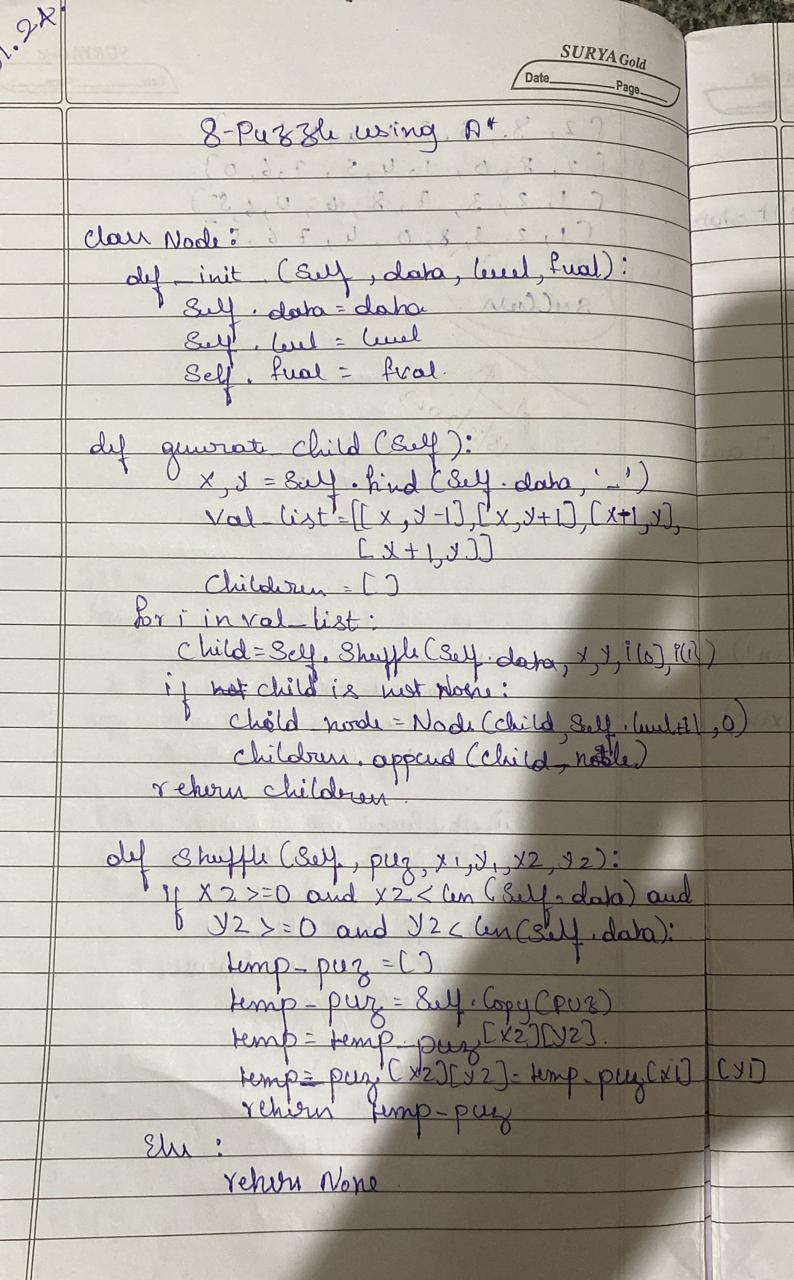 1.2A
SURYA Gold
Date Page
8-Puzzle using A*.
class Node:
def _init (self, data, level, fval):
self. data = data
self. level = level
self. fval = fval.
def generate child (self):
x, y = self. find (self. data, '_')
val_list = [[x, y-1], [x, y+1], [x+1, y],
[x+1, y]]
children = []
for i in val_list:
child = self. shuffle (self. data, x, y, i[0], i[1])
if child is not None:
child node = Node (child, self. level+1, 0)
children. append (child_node)
return children
def shuffle (self, puz, x1, y1, x2, y2):
if x2 >= 0 and x2 < len (self. data) and
y2 >= 0 and y2 < len (self. data):
temp_puz = []
temp_puz = self. copy (puz)
temp = temp_puz [x2][y2].
temp = puz [x2][y2] = temp_puz [x1] [y1]
return temp_puz
Else :
return None